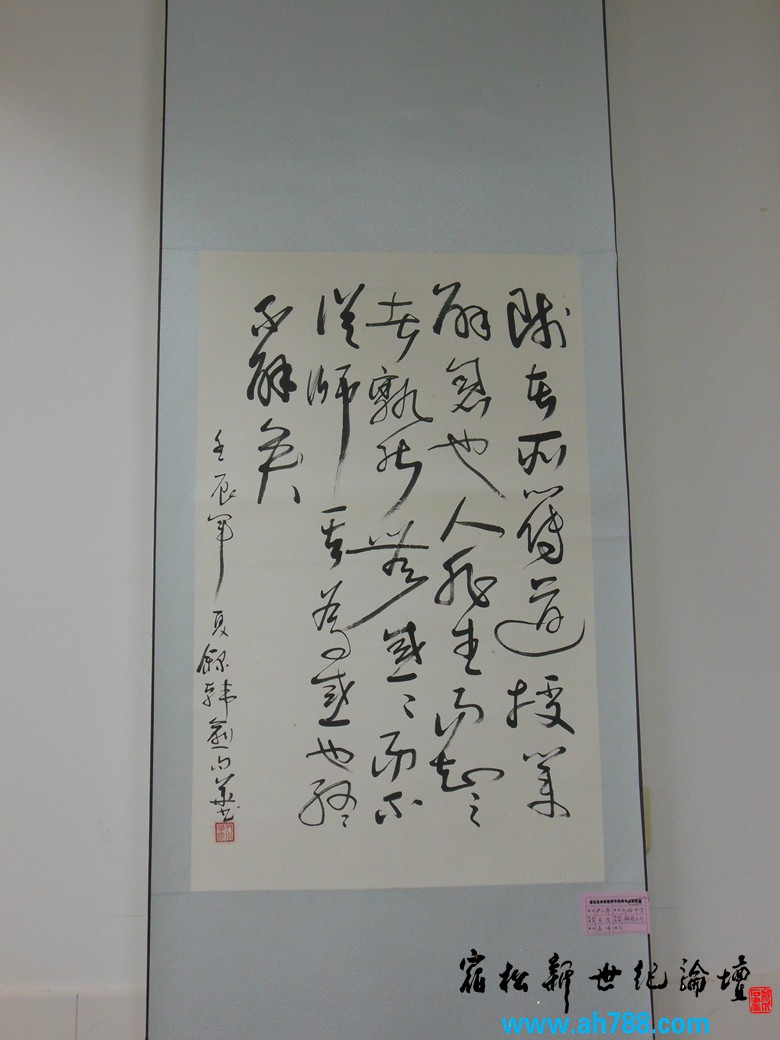 師者所以傳道授業
解惑也人非生而知之
者孰能無惑〻而不
從師其為惑也終
不解矣
壬辰年夏錄韓愈句 華书
宿松新世纪論壇
www.ah788.com